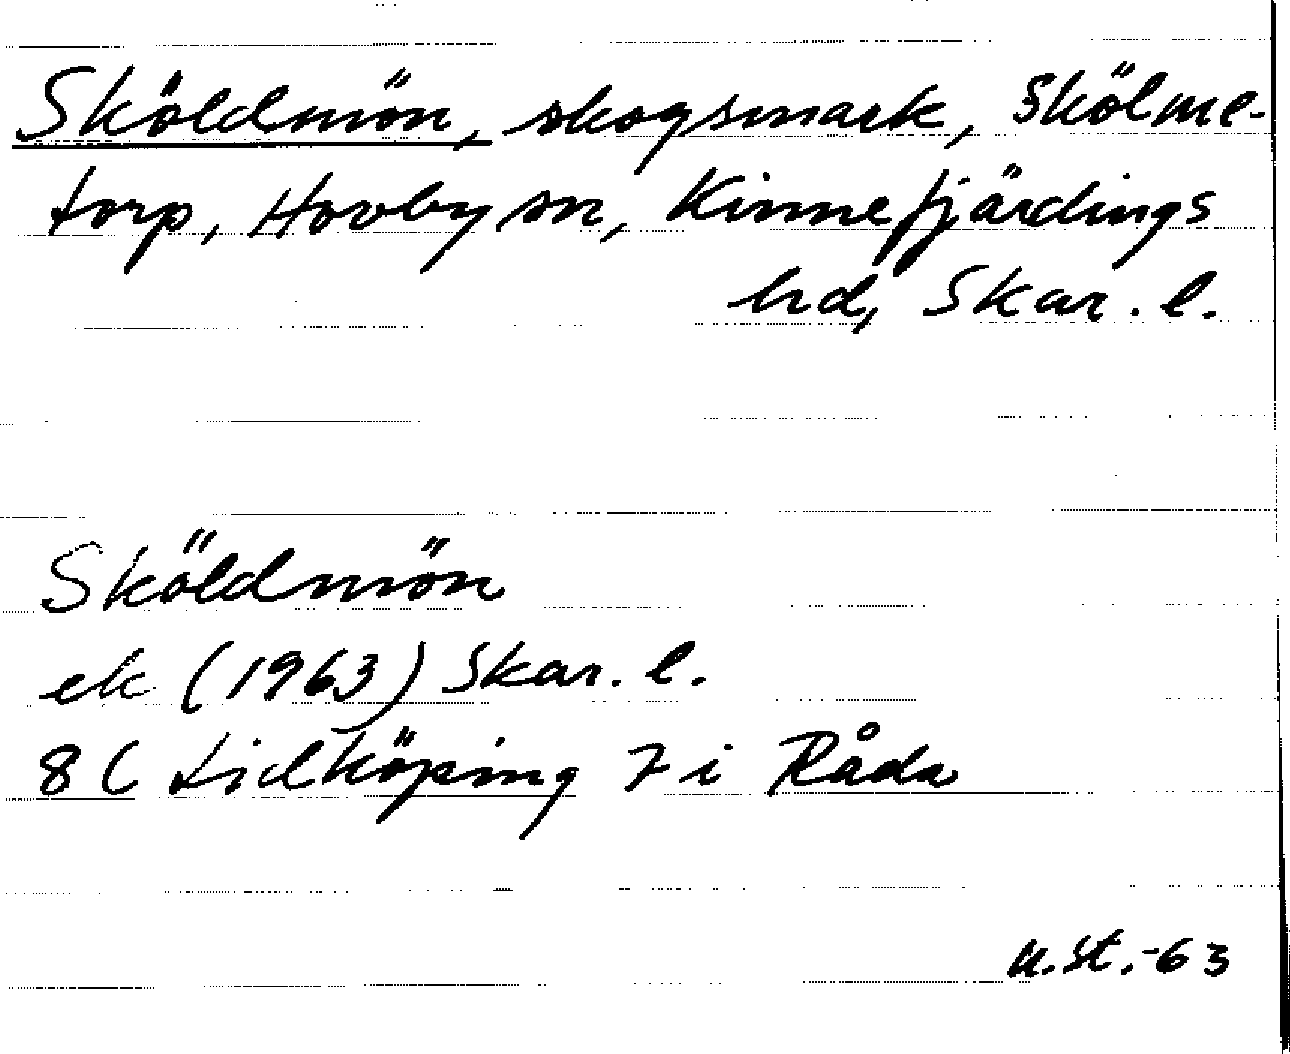 Sköldmön, skogsmark, Skölme-
torp, Hovby sn, Kinnefjärdings
hd, Skar. l.
Sköldmön
ek (1963) Skar. l.
8 C Lidköping 7 i Råda
u.st.-63